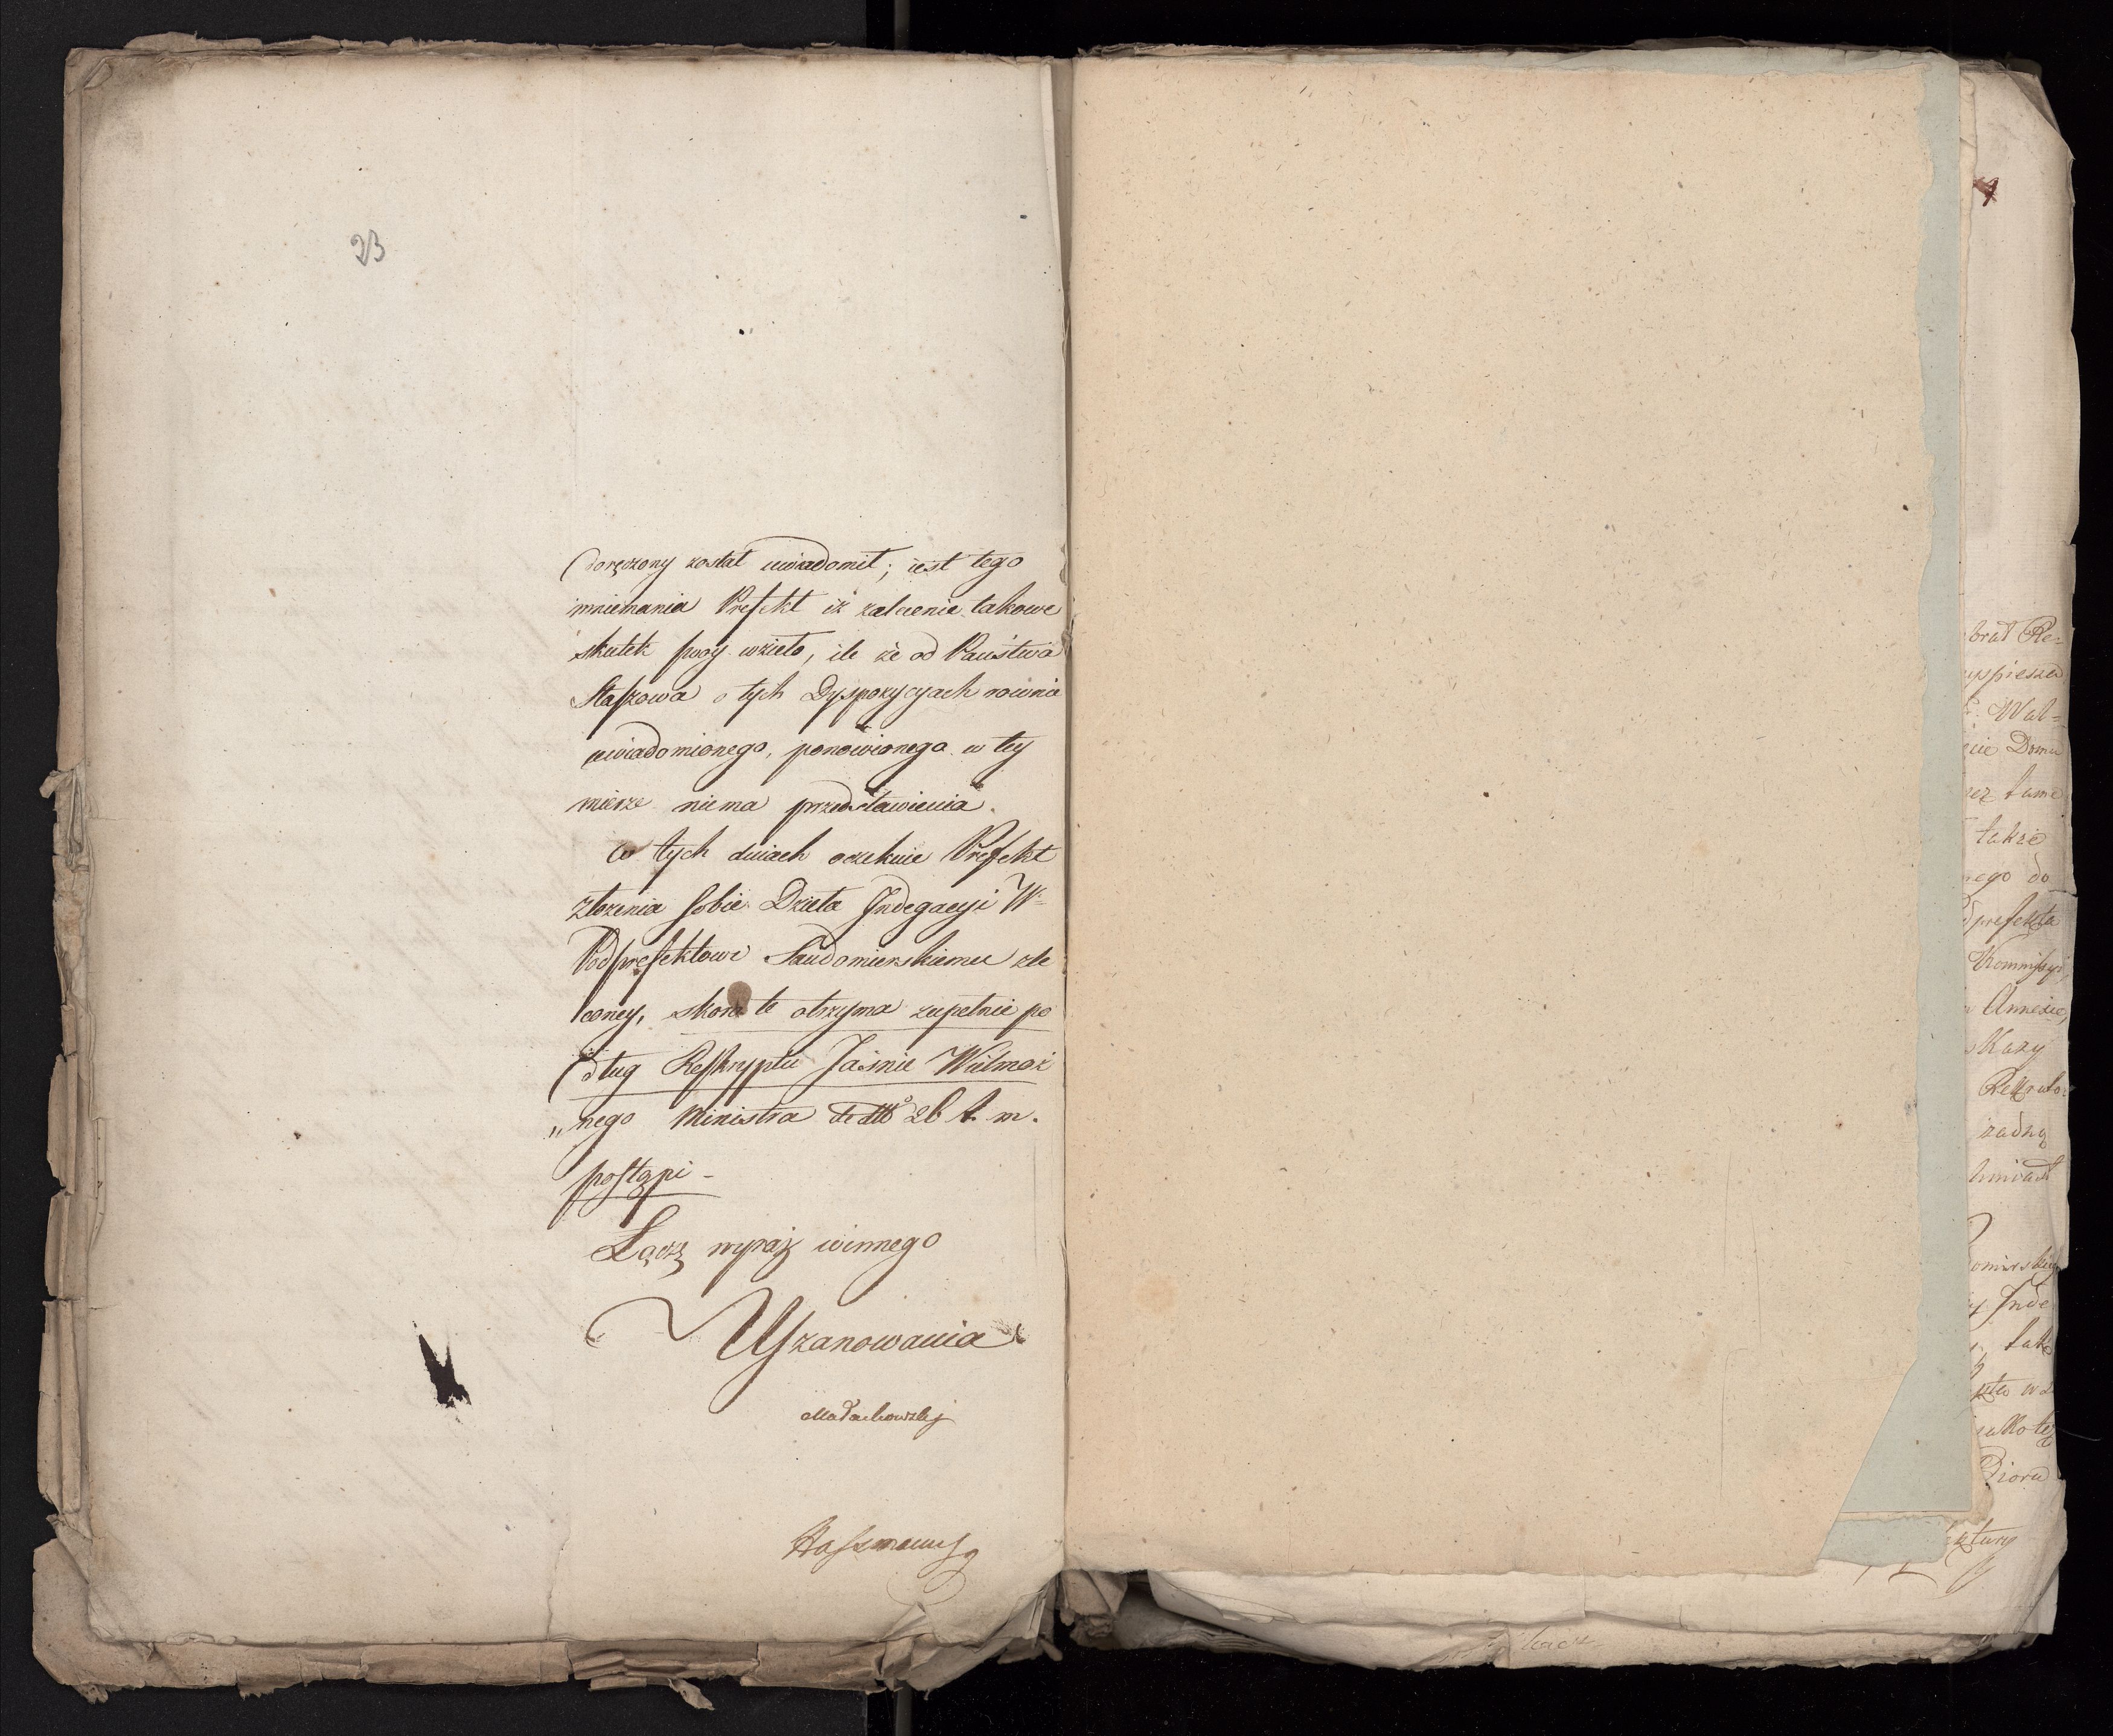 23
doręczony został uwiadomił; iest tego
mniemania Prefekt iż zalecenie takowe
skutek swóy wzieło, ile że od Państwa
Staszowa o tych Dyspozycyach rownie
uwiadomionego, ponowionego w tey
mierze niema przedstawienia.
W tych dniach oczekuie Prefekt
złożenia sobie Dzieła Indegacyi W
Podprefektowi Sandomierskiemu zle
coney, skoro te otrzyma zupełnie po
dług Reskryptu Jaśnie Wielmoż
„nego Ministra de dtto 26 t. m.
postąpi –
Łączę wyraz winnego
Uszanowania
Małachowsky
brał Re-
yspiesza
Wal-
cie Domu
tame
takze
nego do
dprefekta
Kommissyi
Annexie,
żadną
omirskiey
Inde